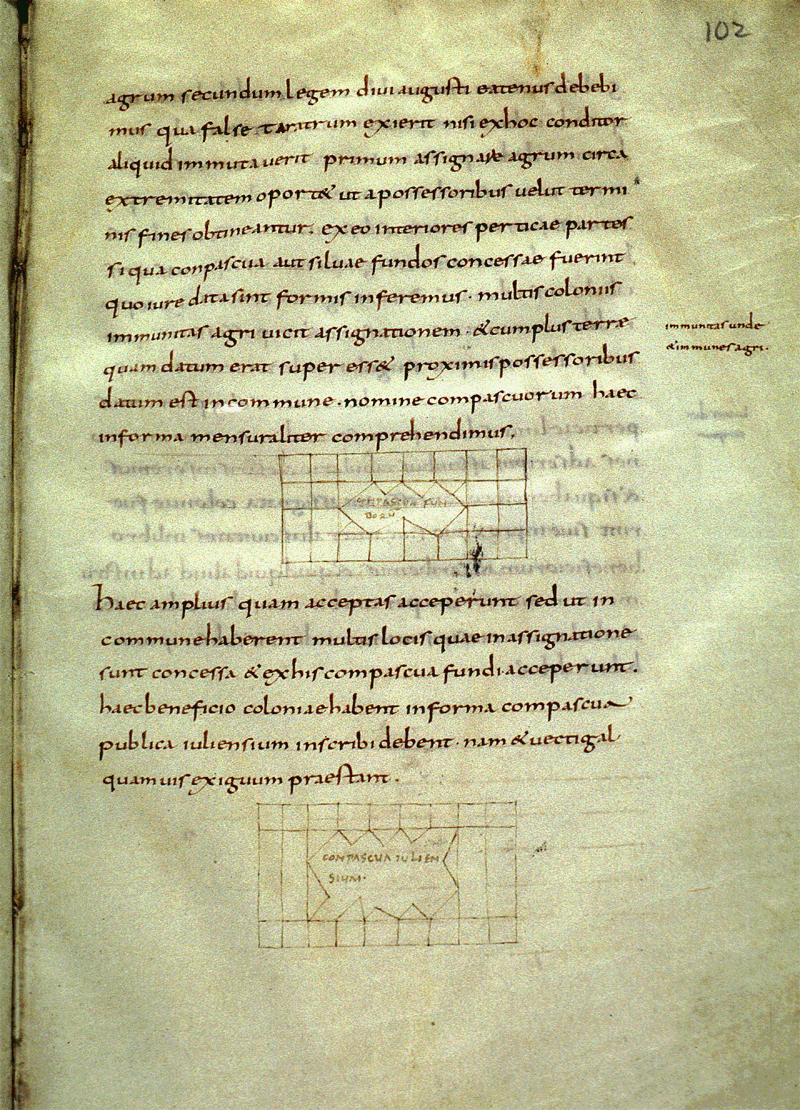 102
agrum secundum legem diui augusti eatenus debebi
mus qua false taratrum exierit nisi exhoc conditor
aliquid immutauerit primum assignare agrum circa
extremitatem oport& ut a possessoribus uelut termi
nis fines obtineantur. ex eo interiores perticae partes
si qua conpascua aut siluae fundos concessae fuerint
quo iure data sint formis inferemus. multis coloniis
immunitas agri uicit assignationem. & cum plus terrae
immunitas unde
& immunes agri.
quam datum erat super ess& proximis possessoribus
datum est in commune. nomine compascuorum haec
in forma mensuraliter comprehendimus.
haec amplius quam acceptas acceperunt sed ut in
commune haberent multis locis quae in assignatione
sunt concessa & ex his compascua fundi acceperunt.
haec beneficio coloniae habent in forma compascua
publica iuliensium inscribi debent. nam & uectigal
quamuis exiguum praestant.
COMPASCUA IULIEN
SIUM.